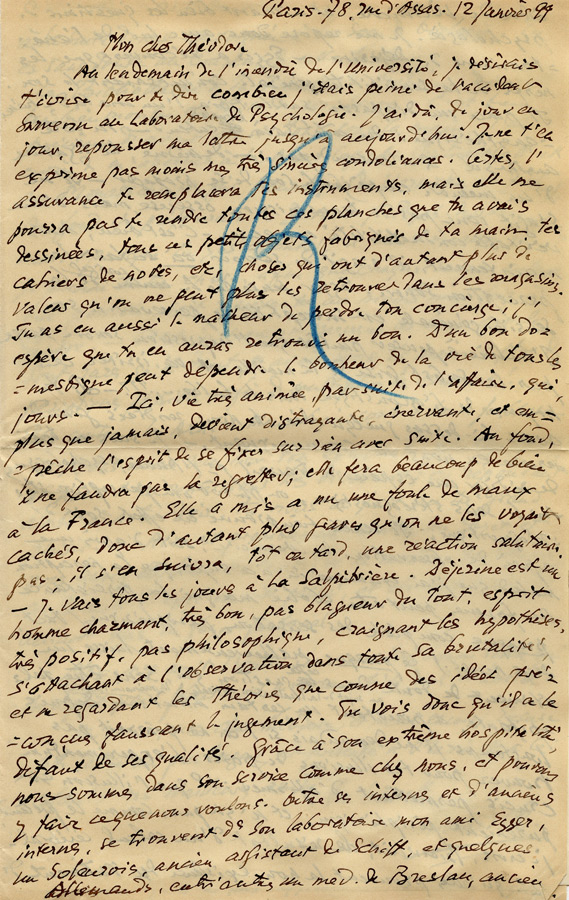 Paris. 78, rue d'Assas. 12 Janvier 99
Mon cher Théodore
Au lendemain de l'incendie de l'Université, je désirais
t'écrire pour te dire combien j'étais peiné de l'accident
survenu au Laboratoire de Psychologie. J'ai dû, de jour en
jour, repousser ma lettre jusqu'à aujourd'hui. Je ne t'en
exprime pas moins mes très sincères condoléances. Certes, l'
assurance te remplacera tes instruments, mais elle ne
pourra pas te rendre toutes ces planches que tu avais
dessinées, tous ces petits objets fabriqués de ta main, tes
cahiers de notes, etc, choses qui ont d'autant plus de
valeur qu'on ne peut plus les retrouver dans les magasins.
Tu as eu aussi le malheur de perdre ton concierge; j'
espère que tu en auras retrouvé un bon. D'un bon do=
=mestique peut dépendre le bonheur de la vie de tous les
jours. — Ici, vie très animée, par suite de l'affaire, qui,
plus que jamais, devient distrayante, énervante, et em=
=pêche l'esprit de se fixer sur rien avec suite. Au fond,
il ne faudra pas la regretter; elle fera beaucoup de bien
à la France. Elle a mis a nu une foule de maux
cachés, donc d'autant plus graves qu'on ne les voyait
pas; il s'en suivra, tôt ou tard, une réaction salutaire.
— Je vais tous les jours à la Salpêtrière. Déjerine est un
homme charmant, très bon, pas blagueur du tout, esprit
très positif, pas philosophique, craignant les hypothèses,
s'attachant à l'observation dans toute sa brutalité,
et ne regardant les théories que comme des idées pré=
=conçues faussant le jugement. Tu vois donc qu'il a le
défaut de ses qualités. Grâce à son extrême hospitalité,
nous sommes dans son service comme chez nous, et pouvons
y faire ce que nous voulons. Outre ses internes et d'anciens
internes, se trouvent ds son laboratoire mon ami Egger,
un Soleurois, ancien assistant de Schiff, et quelques
Allemands, entr'autres un méd. de Breslau, ancien